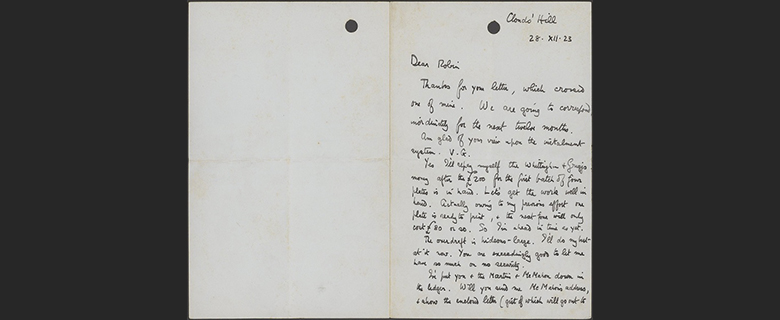 Clouds' Hill
28. XII. 23
Dear Robin
Thanks for your letter, which crossed
one of mine. We are going to correspond
inordinately for the next twelve months.
Am glad of your view upon the instalment
system. V.G.
Yes I'll repay myself the Whittingham & Griggs
money after the £200 for the first batch of four
plates is in hand. Let's get the work well in
hand. Actually owing to my previous effort one
plate is ready to print, & the next four will only
cost £80 or so. So I'm ahead in time as yet.
The overdraft is hideous-large. I'll do my best
at it now. You are exceedingly good to let me
have so much on no security.
I've put you & the Martins & McMahon down in
the ledger. Will you send me McMahon's address,
& show the enclosed letter (gist of which will go out to